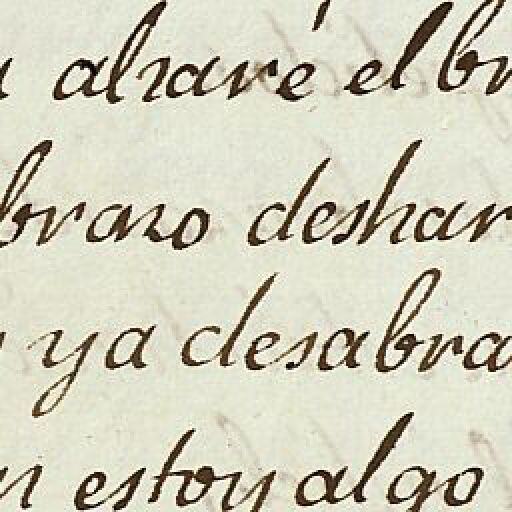 alzaré el br
brazo deshar
ya desabra
estoy algo